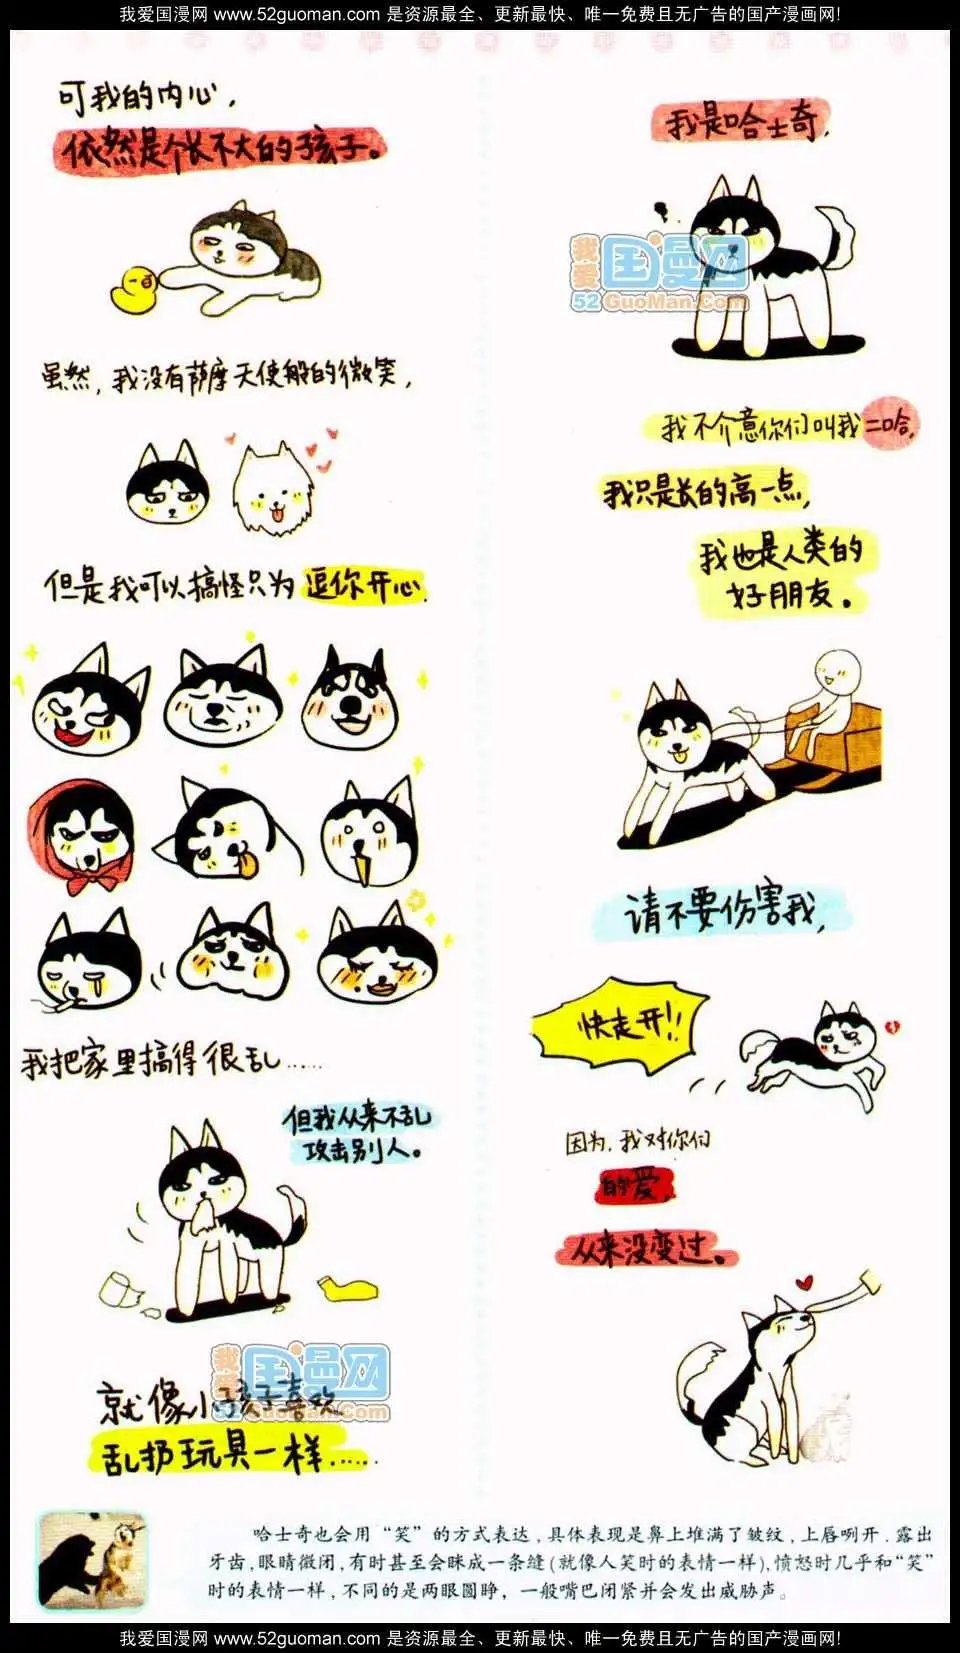 我爱国漫网 www.52guoman.com 是资源最全、更新最快、唯一免费且无广告的国产漫画网!
可我的内心，
依然是个长不大的孩子。
虽然，我没有萨摩天使般的微笑，
但是我可以搞怪只为逗你开心.
我把家里搞得很乱……
但我从来不乱
攻击别人。
就像小孩子喜欢
乱扔玩具一样……
我爱国漫网
52GuoMan.Com
我是哈士奇，
我爱国漫网
52GuoMan.Com
我不介意你们叫我二哈，
我只是长的高一点，
我也是人类的
好朋友。
请不要伤害我，
快走开!!
因为，我对你们
的爱，
从来没变过。
哈士奇也会用“笑”的方式表达，具体表现是鼻上堆满了皱纹，上唇咧开．露出
牙齿，眼睛微闭，有时甚至会眯成一条缝(就像人笑时的表情一样)，愤怒时几乎和“笑”
时的表情一样，不同的是两眼圆睁，一般嘴巴闭紧并会发出威胁声。
我爱国漫网 www.52guoman.com 是资源最全、更新最快、唯一免费且无广告的国产漫画网!